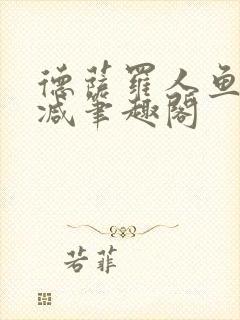 德萨罗人鱼
减笔趣阁
若菲